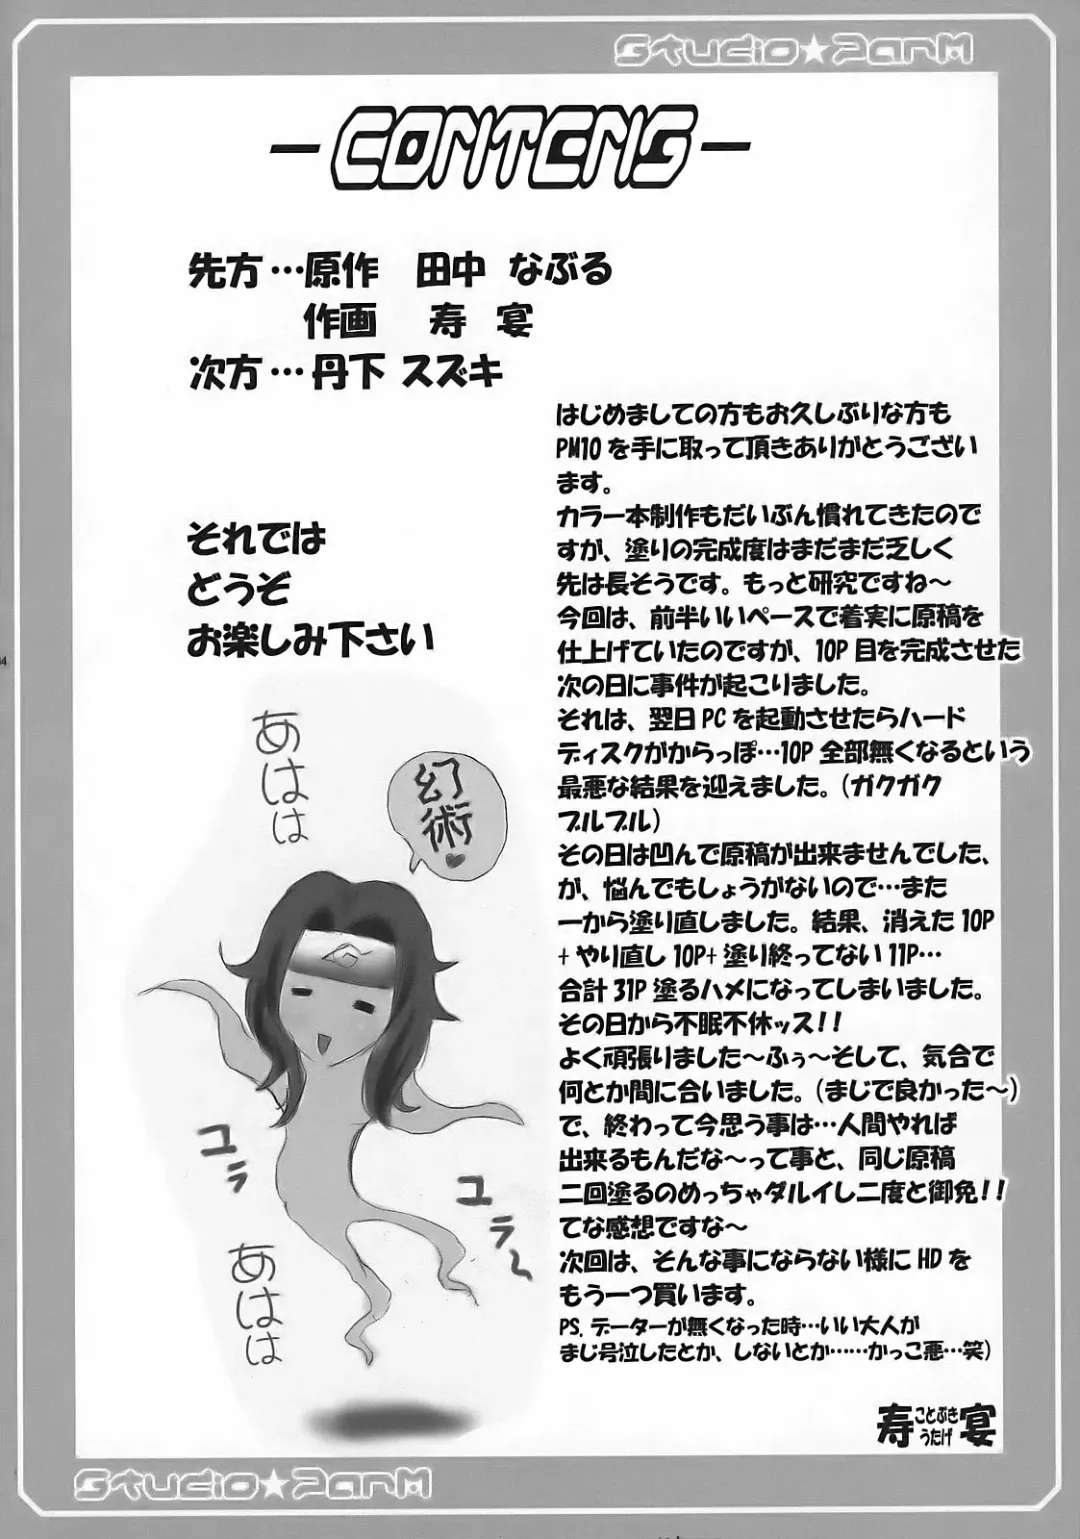 Studio★ParM
-CONTENS-
先方…原作 田中 なぶる
作画 寿 宴
次方…丹下 スズキ
それでは
どうぞ
お楽しみ下さい
はじめましての方もお久しぶりな方も
PM10を手に取って頂きありがとうござい
ます。
カラー本制作もだいぶん慣れてきたので
すが、塗りの完成度はまだまだ乏しく
先は長そうです。もっと研究ですね～
今回は、前半いいペースで着実に原稿を
仕上げていたのですが、10P目を完成させた
次の日に事件が起こりました。
それは、翌日PCを起動させたらハード
ディスクがからっぽ…10P全部無くなるという
最悪な結果を迎えました。(ガクガク
ブルブル)
その日は凹んで原稿が出来ませんでした、
が、悩んでもしょうがないので…また
一から塗り直しました。結果、消えた10P
+やり直し10P+塗り終ってない11P…
合計31P塗るハメになってしまいました。
その日から不眠不休ッス!!
よく頑張りました～ふぅ～そして、気合で
何とか間に合いました。(まじで良かった～)
で、終わって今思う事は…人間やれば
出来るもんだな～って事と、同じ原稿
二回塗るのめっちゃダルイし二度と御免!!
てな感想ですな～
次回は、そんな事にならない様にHDを
もう一つ買います。
PS.データーが無くなった時…いい大人が
まじ号泣したとか、しないとか……かっこ悪…笑)
寿宴
ことぶき
うたげ
あはは
幻術♥
ユラ
ユラ～
あはは
Studio★ParM
04